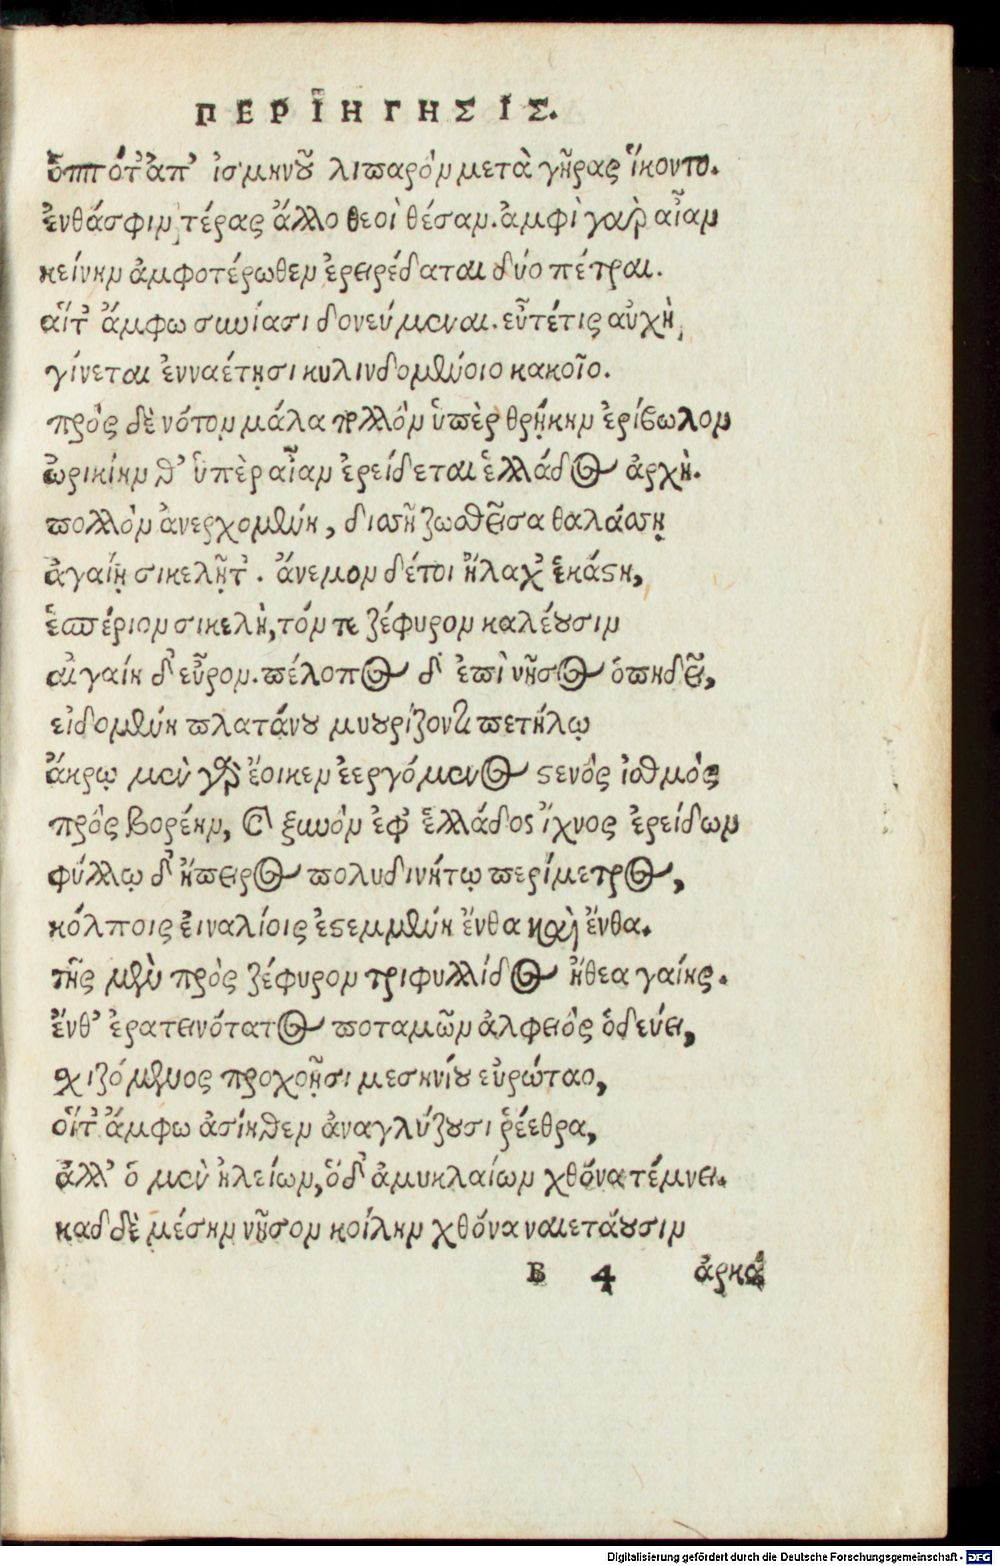 ΠΕΡΙΗΓΗΣΙΣ.
ὁππότ' ἀπ' ἰσμηνοῦ λιπαρὸν μετὰ γῆρας ἵκοντο.
ἔνθά σφιν τέρας ἄλλο θεοὶ θέσαν. ἀμφὶ γὰρ αἶαν
κείνην ἀμφοτέρωθεν ἐρειρέδαται δύο πέτραι.
αἵτ' ἄμφω συνίασι δονεύμεναι. εὖτέ τις αὐχὴ
γίνεται ἐνναέτῃσι κυλινδομένοιο κακοῖο.
πρὸς δὲ νότον μάλα πολλὸν ὑπὲρ θρῄκην ἐρίβωλον
ὠρικίην θ' ὑπὲρ αἶαν ἐρείδεται ἑλλάδος ἀρχή.
πολλὸν ἀνερχομένη, δισσῇ ζωσθεῖσα θαλάσσῃ
ἀγαίῃ σικελῇτ'. ἄνεμον δέ τοι ἤλαχ' ἑκάστη,
ἑσπέριον σικελὴ, τόν τε ζέφυρον καλέουσιν
αἰγαίη δ' εὖρον. πέλοπος δ' ἐπὶ νῆσος ὀπηδεῖ,
εἰδομένη πλατάνου μυουρίζοντι πετήλῳ
ἄκρῳ μὲν γὰρ ἔοικεν ἐεργόμενος στενὸς ἰσθμὸς
πρὸς βορέην, καὶ ξυνὸν ἐφ' ἑλλάδος ἴχνος ἐρείδων
φύλλῳ δ' ἤπειρος πολυδινήτῳ περίμετρος,
κόλποις εἰναλίοις ἐστεμμένη ἔνθα καὶ ἔνθα.
τῆς μὲν πρὸς ζέφυρον τριφυλλίδος ἤθεα γαίης.
ἔνθ' ἐρατεινότατος ποταμῶν ἀλφειὸς ὁδεύει,
σχιζόμενος προχοῇσι μεσηνίου εὐρώταο,
οἵτ' ἄμφω ἀσίηθεν ἀναγλύζουσι ῥέεθρα,
ἀλλ' ὁ μὲν ἠλείων, ὅδ' ἀμυκλαίων χθόνα τέμνει.
καδδὲ μέσην νῆσον κοίλην χθόνα ναιετάουσιν
B 4 ἀρκά